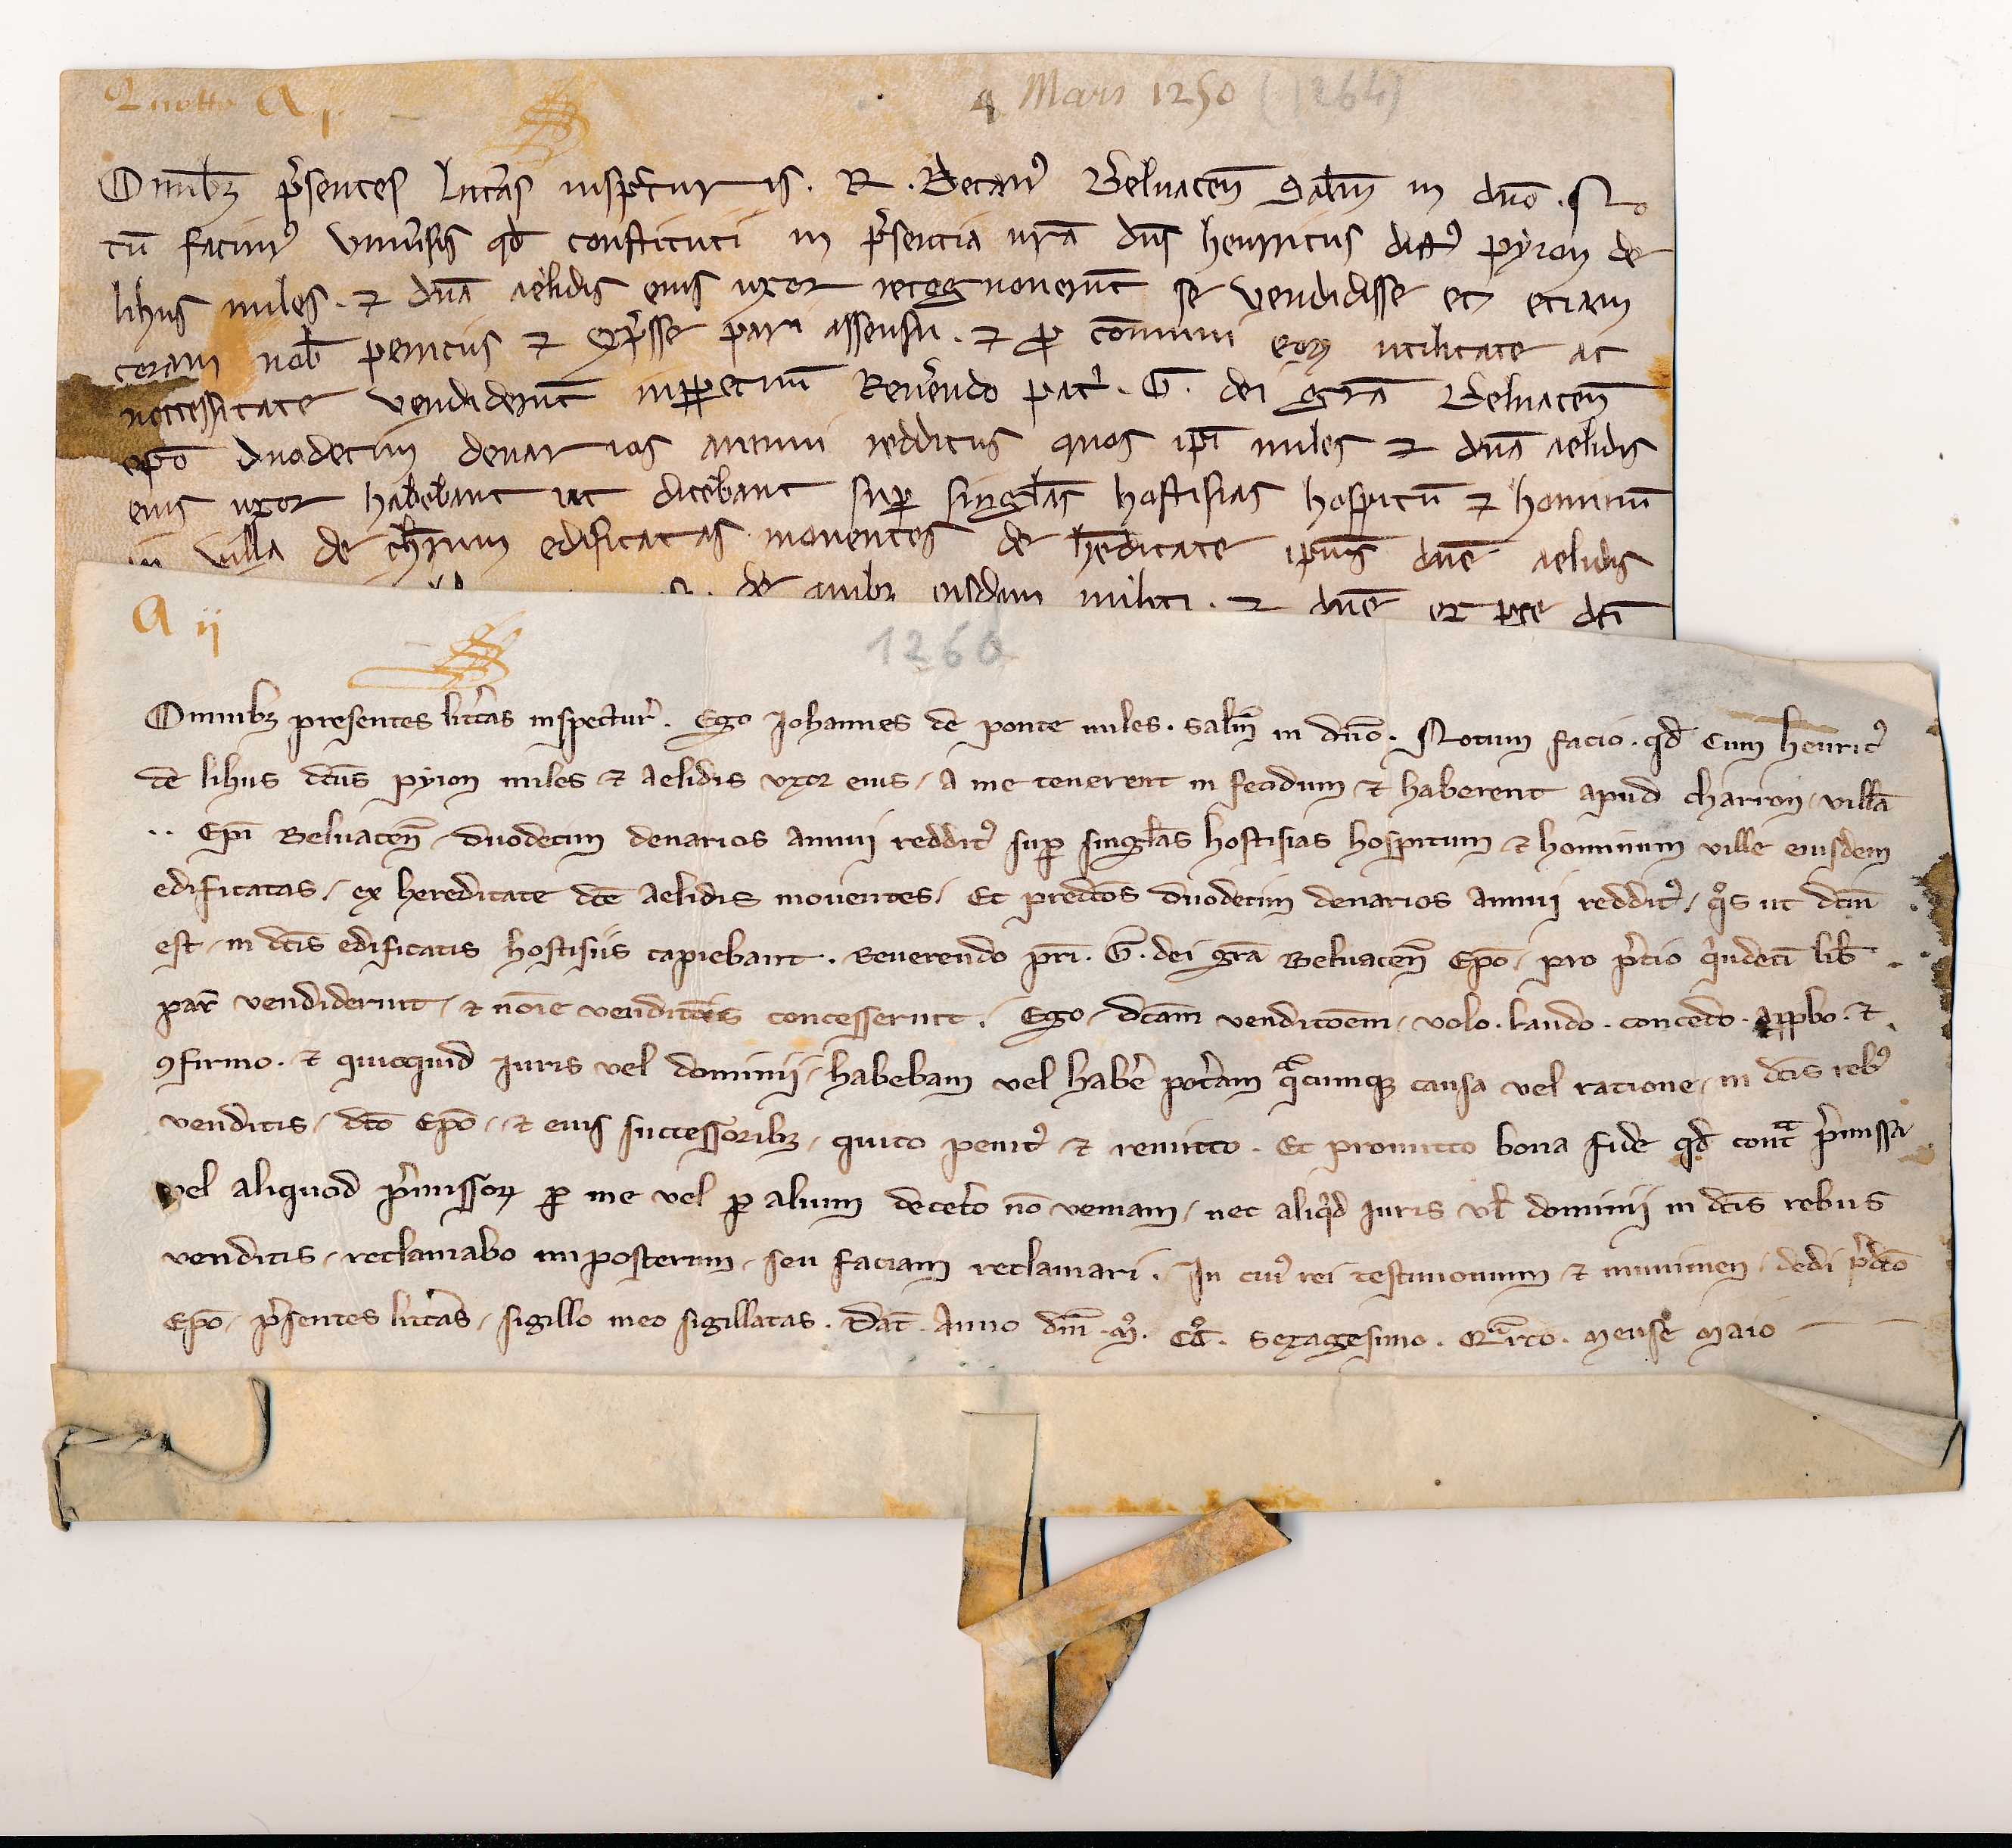 Quotto A j.
4 Mars 1250 (1264)
Omibȝ p̃sentes litt̃as insp̃cturis. R. Decan⁹ Beluaceñ Salt̃m in dño. No
tũ facim⁹ vniũsis qd̃ constituti in p̃sentia nrã dñs henricus dict⁹ pyron de
lihus miles. ⁊ dñã aelidis eius uxor recognouerũt se vendidisse et etiam
coram nob̃ penitus ⁊ exp̃sse pari assensu. ⁊ ꝓ cõmuni eoꝝ utilitate ac
neccessitate vendiderũt inꝑpetuũ Reuẽndo patͥ. G. dei grã Beluaceñ
ep̃o duodecim denarios annui redditus quos ip̃i miles ⁊ dñã aelidis
eius uxor habebant ut dicebant suꝑ singl̃as hostisias hospitũ ⁊ hominũ
in villa de ch̃rum edificatas mouentes de h̃editate ip̃iuˢ dñe aelidis
de quibȝ eisdem militi. ⁊ dñe ex pte dc̃i
A ij
1260
Omnibȝ presentes litt̃as inspectur̃. Ego Johannes de ponte miles. salt̃m in dño. Notum facio. qd̃ Cum henric⁹
de lihus dc̃us pyron miles ⁊ aelidis uxor eius / a me tenerent in feodum ⁊ haberent apud charron / villã
.. Ep̃i Beluaceñ / duodecim denarios annui reddit⁹ suꝑ singl̃as hostisias hospitum ⁊ hominum ville eiusdem
edificatas / ex hereditate dc̃e aelidis mouentes / Et predc̃os duodecim denarios annui reddit⁹ / qͦs ut dc̃m
est / in dc̃is edificatis hostisiis capiebant. Reuerendo pr̃i. G. dei grã Beluaceñ Ep̃o / pro p̃cio qͥndecĩ lib̃
par̃ vendiderunt / ⁊ nõie vendic̃ois concesserunt. Ego / dc̃am vendic̃oem / volo. laudo. concedo. appbo. ⁊
ꝯfirmo. ⁊ quicquid iuris vel dominij / habebam vel hab̃e pot̃am qͣcumqȝ causa vel ratione / in dc̃is reb⁹
venditis / dc̃o Ep̃o / ⁊ eius successoribȝ / quito penit⁹ ⁊ remitto. Et promitto bona fide qd̃ contͣ p̃missa
vel aliquod p̃missoꝝ ꝑ me vel ꝑ alium decet̃o nõ veniam / nec aliqͥd iuris vl̃ dominij in dc̃is rebus
venditis / reclamabo inposterum / seu faciam reclamari. In cui⁹ rei testimonium ⁊ munimen / dedi p̃dc̃o
Ep̃o / p̃sentes litt̃as / sigillo meo sigillatas. Dat̃. Anno dñi. Mͦ. CCͦ. sexagesimo. Qͣrto. mense maio